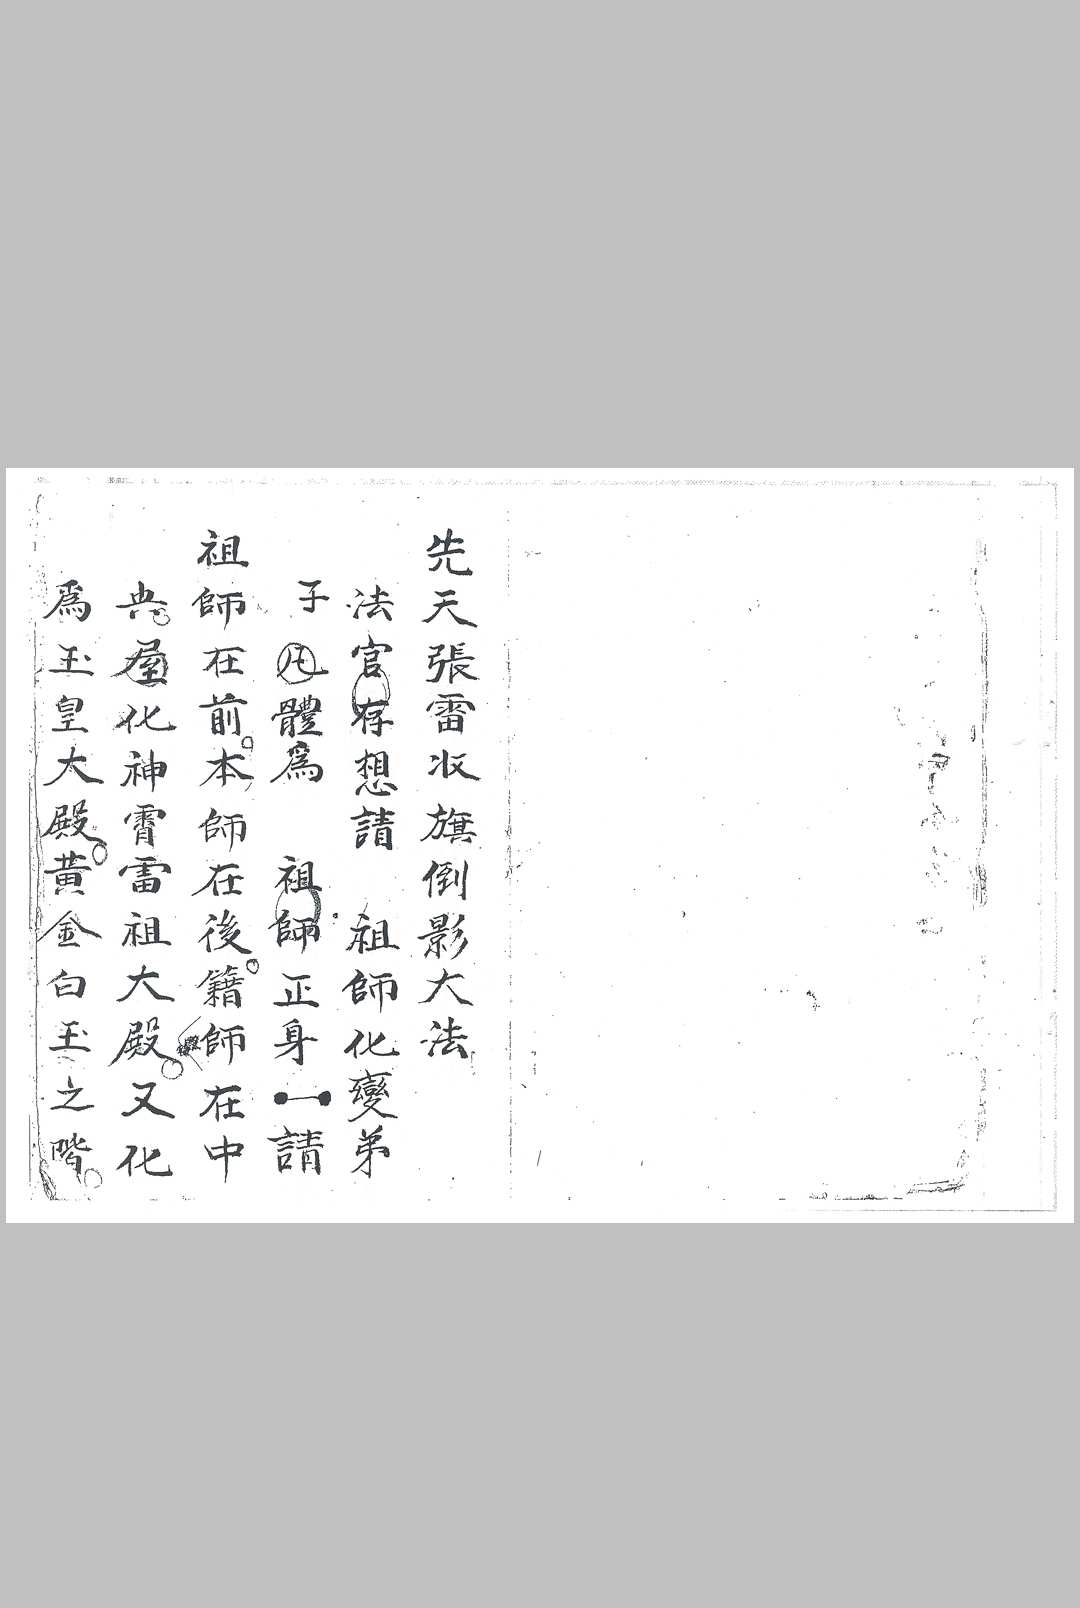 先天張雷收旗倒影大法
法官存想請　祖師化變弟
子凡體為　祖師正身一請
祖師在前本師在後籍師在中
典屋化神霄雷祖大殿又化
為玉皇大殿黃金白玉之階